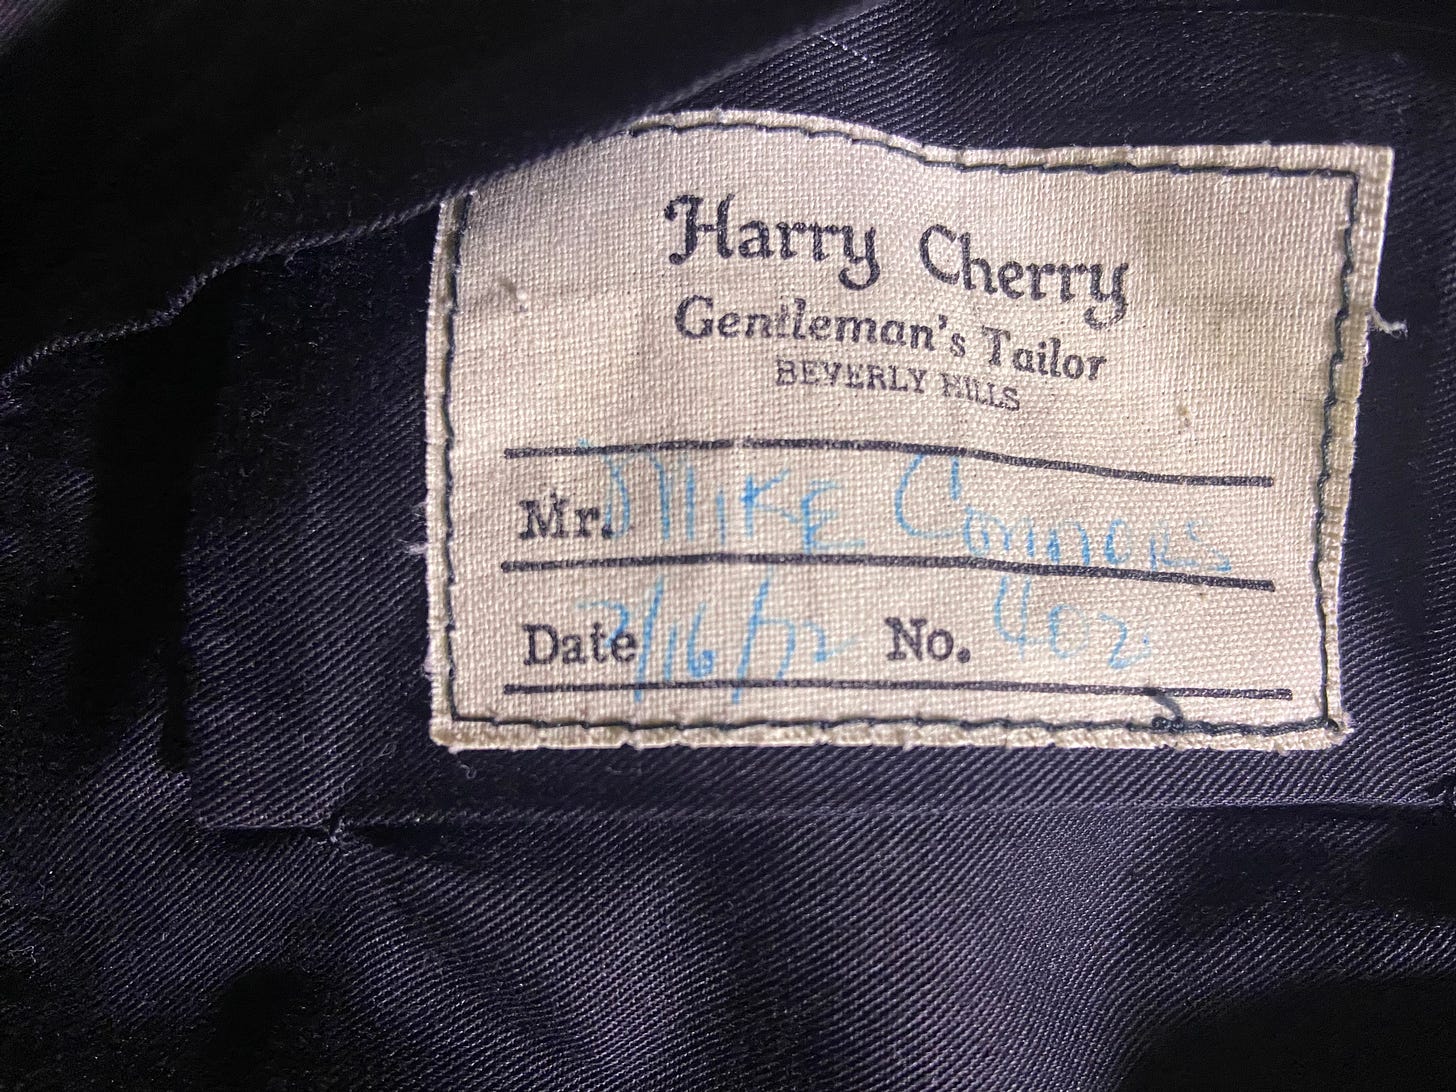 Harry Cherry
Gentleman's Tailor
BEVERLY HILLS
Mr. MIKE CONNORS
Date 7/16/72 No. 402